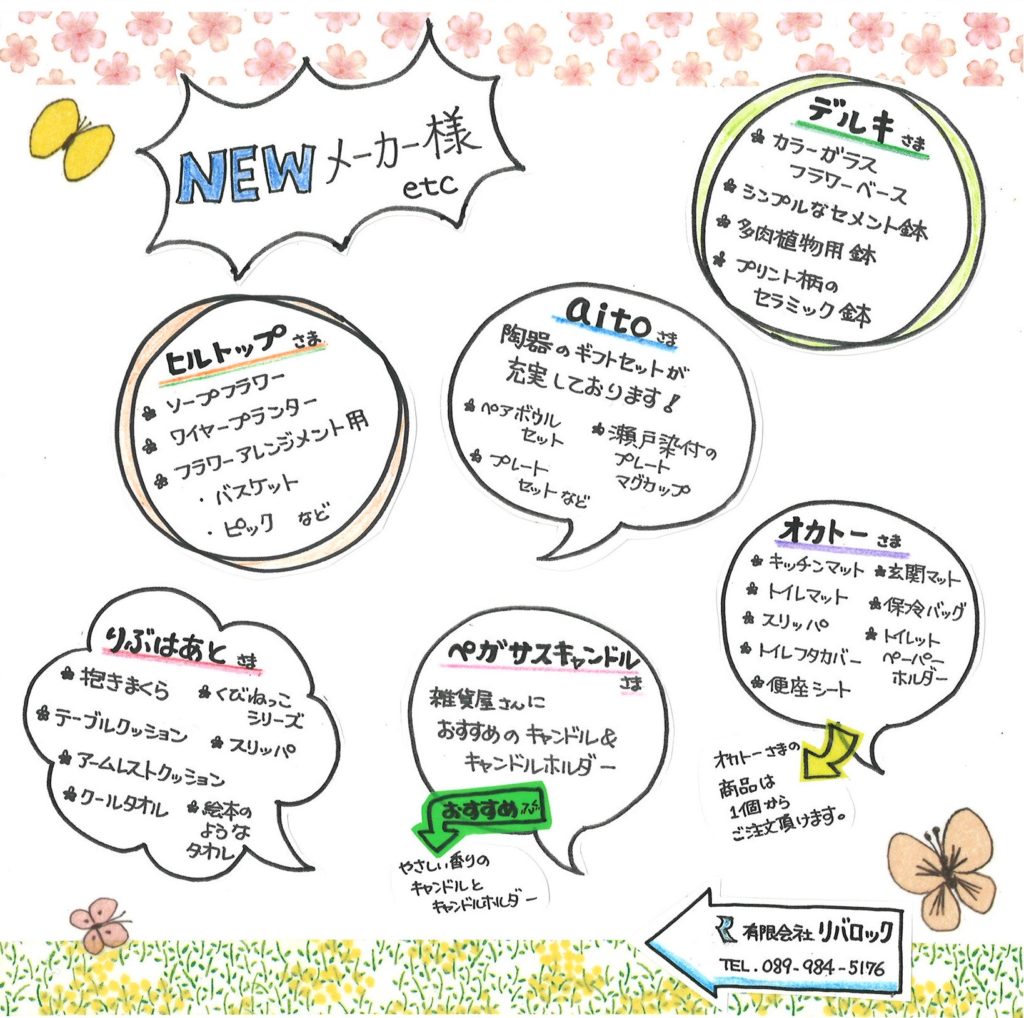 NEWメーカー様
etc
デルキさま
カラーガラス
フラワーベース
シンプルなセメント鉢
多肉植物用鉢
プリント柄の
セラミック鉢
ヒルトップさま
ソープフラワー
ワイヤープランター
フラワーアレンジメント用
・バスケット
・ピック など
aitoさま
陶器のギフトセットが
充実しております!
ペアボウル
セット
プレート
セットなど
瀬戸染付の
プレート
マグカップ
オカトーさま
キッチンマット
トイレマット
スリッパ
トイレフタカバー
便座シート
玄関マット
保冷バッグ
トイレット
ペーパー
ホルダー
オカトーさまの
商品は
1個から
ご注文頂けます。
りぶはあとさま
抱きまくら
テーブルクッション
アームレストクッション
クールタオル
くびねっこ
シリーズ
スリッパ
絵本の
ような
タオル
ペガサスキャンドル
さま
雑貨屋さんに
おすすめのキャンドル&
キャンドルホルダー
おすすめ
やさしい香りの
キャンドルと
キャンドルホルダー
有限会社リバロック
TEL.089-984-5176